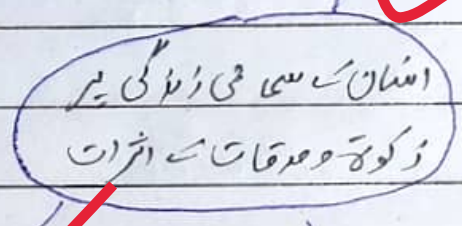 انسان کے سماجی زندگی پر
زکوۃ و صدقات کے اثرات